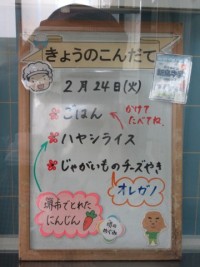 きょうのこんだて
2月24日(火)
ごはん
かけて
たべてね。
ハヤシライス
じゃがいものチーズやき
オレガノ
堺市でとれた
にんじん